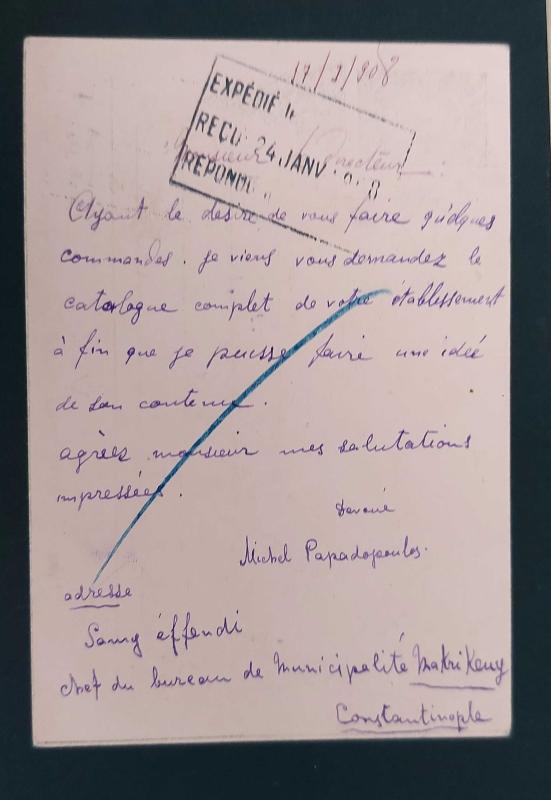 17/1/908
EXPÉDIÉ
REÇU 24 JANV
REPONDU
Monsieur Directeur :
Ayant le desire de vous faire quelques
commandes. je viens vous demandez le
catalogue complet de votre établissement
à fin que je puisse faire une idée
de son contenu.
agrèez monsieur mes salutations
impressées.
Devoué
Michel Papadopoulos.
adresse
Samy éffendi
chef du bureau de Municipalité Makrikeuy
Constantinople